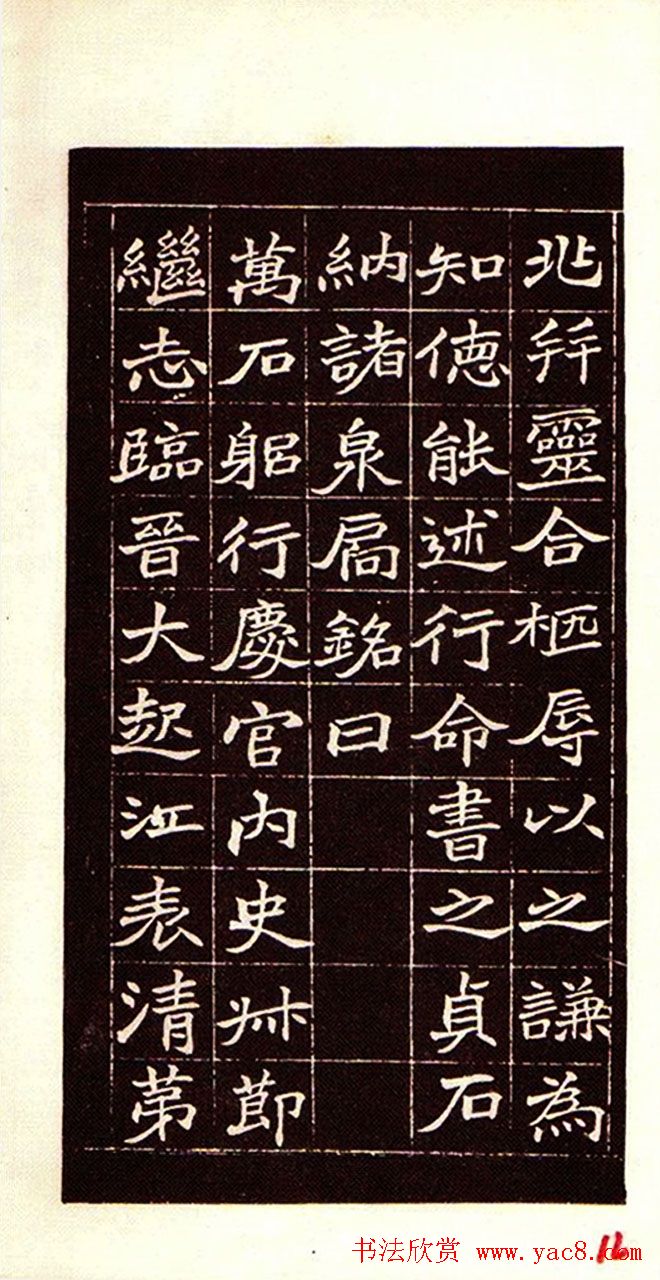 兆幷靈合柩辱以之謙為
知徳能述行命書之貞石
納諸泉扃銘曰
萬石躬行慶官内史州節
繼志臨晉大起江表清苐
书法欣赏 www.yac8.com
16